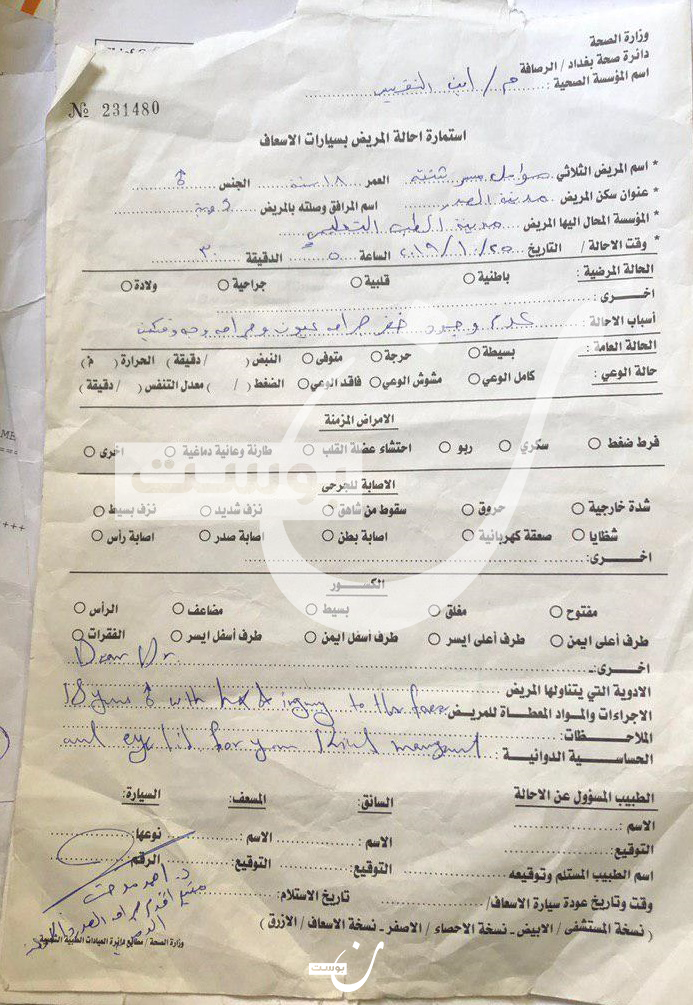 وزارة الصحة
دائرة صحة بغداد / الرصافة
اسم المؤسسة الصحية : م / ابن النفيس
№ 231480
استمارة احالة المريض بسيارات الاسعاف
* اسم المريض الثلاثي العمر ١٨ سنة الجنس ♂
* عنوان سكن المريض مدينة الصدر اسم المرافق وصلته بالمريض
* المؤسسة المحال اليها المريض مدينة الطب التعليمي
* وقت الاحالة / التاريخ ٢٠١٩/١٠/٢٥ الساعة ٥ الدقيقة ٣٠
الحالة المرضية : باطنية قلبية جراحية ولادة
اخرى :
أسباب الاحالة : عدم وجود خفر جراحة عيون وجراحة وجه وفكين
الحالة العامة : بسيطة حرجة متوفى النبض ( / دقيقة) الحرارة ( م)
حالة الوعي : كامل الوعي مشوش الوعي فاقد الوعي الضغط ( / ) معدل التنفس ( / دقيقة)
الامراض المزمنة
فرط ضغط سكري ربو احتشاء عضلة القلب طارئة وعائية دماغية اخرى
الاصابة للجرحى
شدة خارجية حروق سقوط من شاهق نزف شديد نزف بسيط
شظايا صعقة كهربائية اصابة بطن اصابة صدر اصابة رأس
اخرى :
الكسور
مفتوح مغلق بسيط مضاعف الرأس
طرف أعلى ايمن طرف أعلى ايسر طرف أسفل ايمن طرف أسفل ايسر الفقرات
اخرى :
Dear Dr.
الادوية التي يتناولها المريض
18 years ♂ with injury to the face
الاجراءات والمواد المعطاة للمريض
الملاحظات :
and eye lid for your kind
الحساسية الدوائية :
الطبيب المسؤول عن الاحالة السائق: المسعف: السيارة:
الاسم : الاسم : الاسم : نوعها:
التوقيع : التوقيع: التوقيع: الرقم:
اسم الطبيب المستلم وتوقيعه
وقت وتاريخ عودة سيارة الاسعاف/ تاريخ الاستلام:
د. احمد مدحت
( نسخة المستشفى / الابيض - نسخة الاحصاء / الاصفر - نسخة الاسعاف / الازرق )
وزارة الصحة / مطابع دائرة العيادات الطبية الشعبية
ن بوست
ن بوست